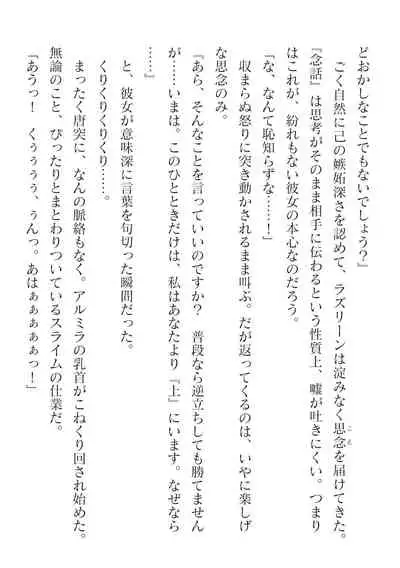 どおかしなことでもないでしょう？』
　ごく自然に己の嫉妬深さを認めて、ラズリーンは淀みなく思念を届けてきた。
『念話』は思考がそのまま相手に伝わるという性質上、嘘が吐きにくい。つまり
はこれが、紛れもない彼女の本心なのだろう。
「な、なんて恥知らずな……！」
　収まらぬ怒りに突き動かされるまま叫ぶ。だが返ってくるのは、いやに楽しげ
な思念のみ。
『あら、そんなことを言っていいのですか？　普段なら逆立ちしても勝てません
が……いまは。このひとときだけは、私はあなたより『上』にいます。なぜなら
……』
　と、彼女が意味深に言葉を句切った瞬間だった。
　くりくりくりくり……。
　まったく唐突に、なんの脈絡もなく。アルミラの乳首がこねくり回され始めた。
無論のこと、ぴったりとまとわりついているスライムの仕業だ。
「あうっ！　くぅぅぅぅ、ぅんっ。あはぁぁぁぁぁっ！」